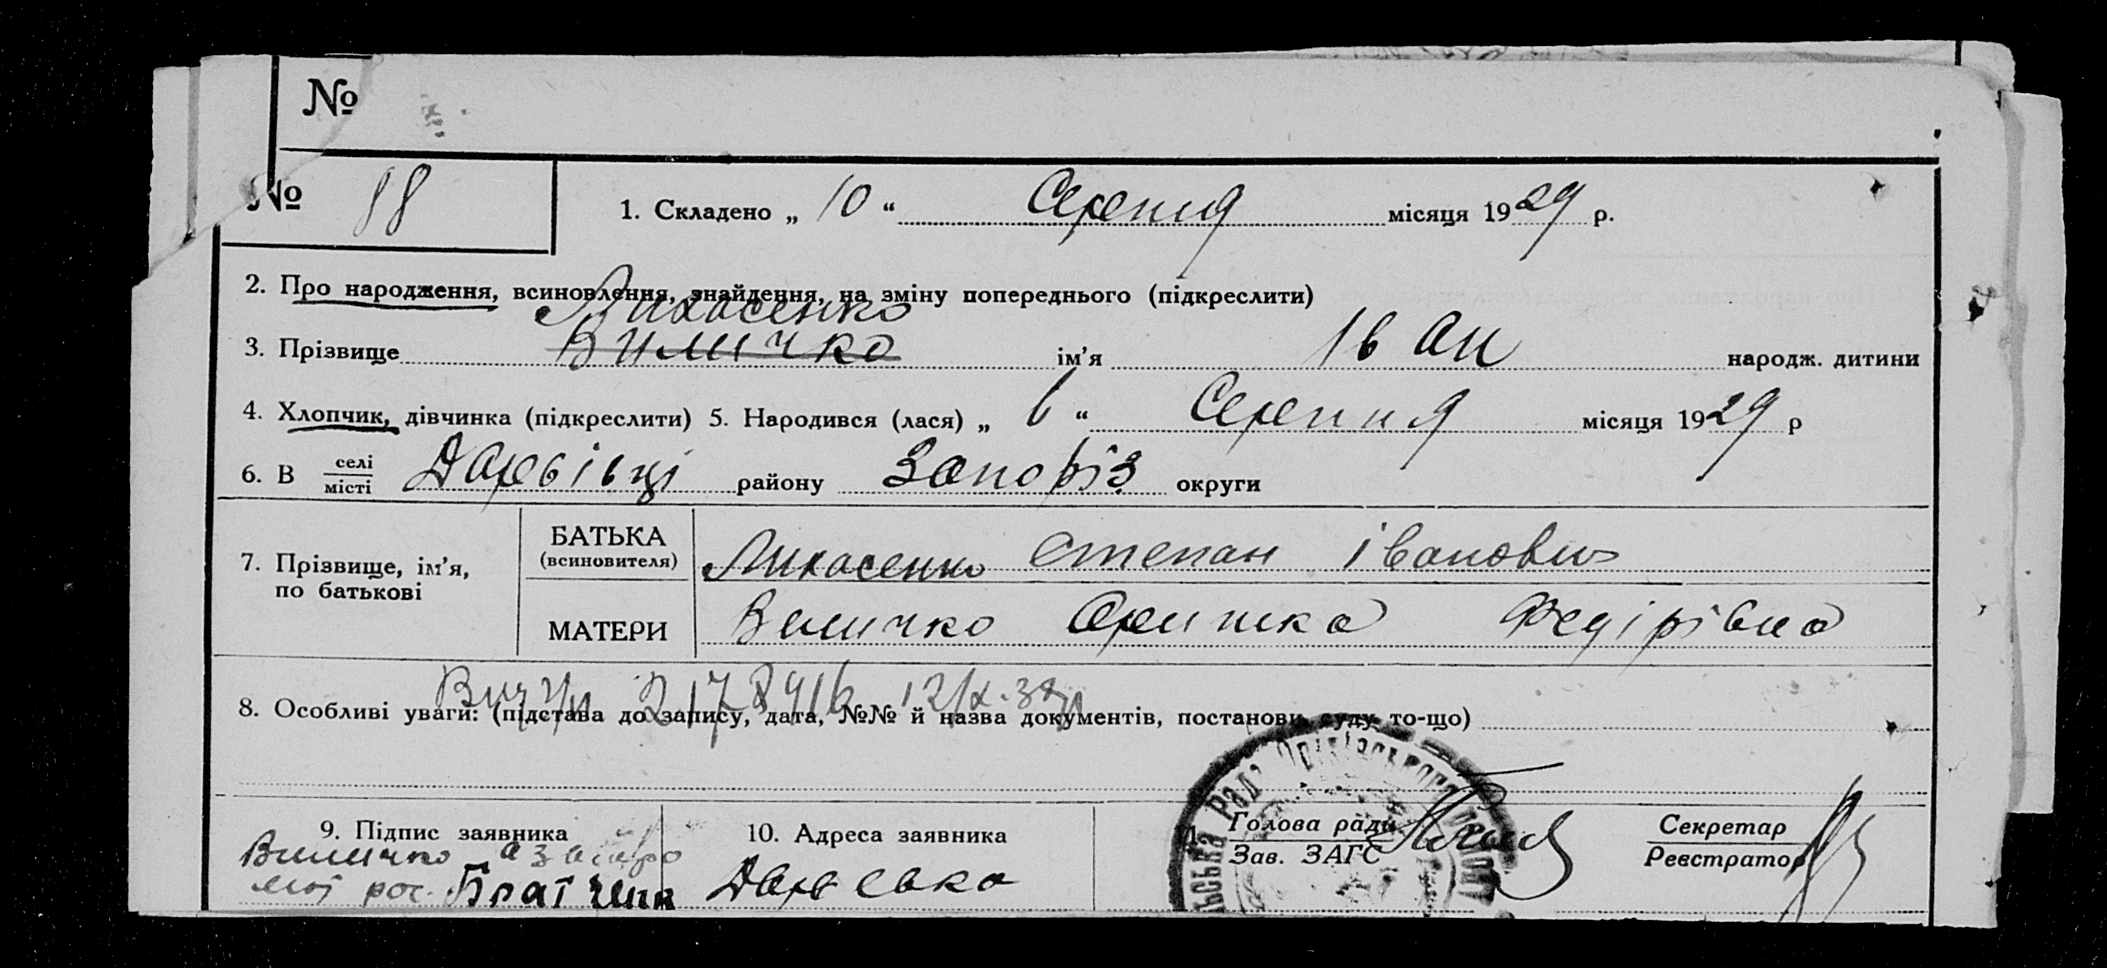 №
№ 88 1. Складено „ 10 “ Серпня місяця 1929 р.
2. Про народження, всиновлення, знайдення, на зміну попереднього (підкреслити)
Лихасенко
3. Прізвище Виличко ім’я Іван народж. дитини
4. Хлопчик, дівчинка (підкреслити) 5. Народився (лася) „ 6 “ Серпня місяця 1929 р
6. В селі місті Дарьівці району Запоріз округи
7. Прізвище, ім’я, по батькові
БАТЬКА (всиновителя) Лихасенко Степан Іванович
МАТЕРИ Виличко Оришка Федірівна
217841b 12/X-
8. Особливі уваги: (підстава до запису, дата, №№ й назва документів, постанови суду то-що)
9. Підпис заявника
Виличко а за
рос. Братчин
10. Адреса заявника
Дарьевка
Голова ради
Зав. ЗАГС
Секретар
Реєстратор
льська Рада Оріхівського району